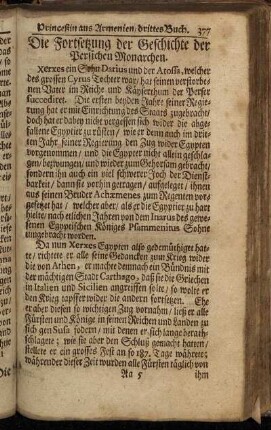 Princeßin aus Armenien/ drittes Buch. 377
Die Fortsetzung der Geschichte der
Persischen Monarchen.
Xerxes ein Sohn Darius und der Atossa, welcher
des grossen Cyrus Tochter war/ hat seinem verstorbe-
nen Vater im Reiche und Käyserthum der Perser
succediret. Die ersten beyden Jahre seiner Regie-
rung hat er mit Einrichtung des Staats zugebracht/
doch hat er dabey nicht vergessen sich wider die abge-
fallene Egyptier zu rüsten/ wie er denn auch im drit-
ten Jahr seiner Regierung den Zug wider Egypten
vorgenommen/ und die Egypter nicht allein geschla-
gen/ bezwungen/ und wieder zum Gehorsam gebracht/
sondern ihn auch ein viel schwerer Joch der Dienst-
barkeit/ dann sie vorhin getragen/ aufgeleget/ ihnen
aus seinen Bruder Achæmenes zum Regenten vor-
gesetzet hat/ welcher aber/ als er die Egyptier zu hart
hielte/ nach etlichen Jahren von dem Inarus des gewe-
senen Egyptischen Königes Psammenitus Sohne
umgebracht worden.
Da nun Xerxes Egypten also gedemüthiget hat-
te/ richtete er alle seine Gedancken zum Krieg wider
die von Athen/ er machte demnach ein Bündnis mit
der mächtigen Stadt Carthago/ daß sie die Griechen
in Italien und Sicilien angreiffen solte/ so wolte er
den Krieg tapffer wider die andern fortsetzen. Ehe
er aber diesen so wichtigen Zug vornahm/ ließ er alle
Fürsten und Könige in seinen Reichen und Landen zu
sich gen Susa fodern/ mit denen er sich lange berath-
schlagete; wie sie aber den Schluß gemacht hatten/
stellete er ein grosses Fest an so 187. Tage währete;
währender dieser Zeit wurden alle Fürsten täglich von
Aa 5 ihm